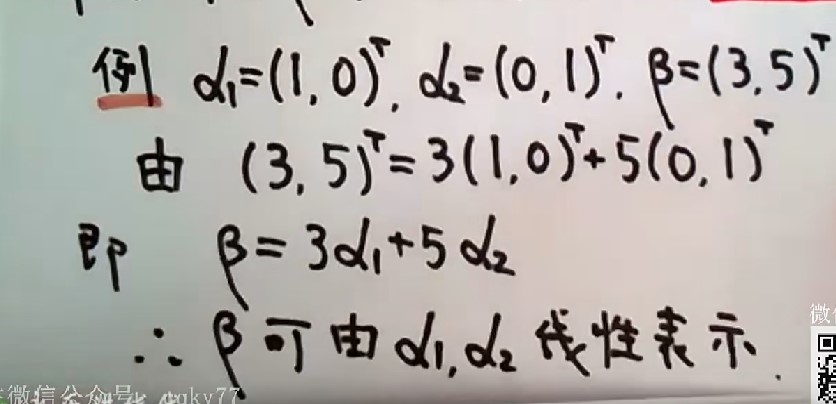 例 α₁=(1,0)ᵀ, α₂=(0,1)ᵀ, β=(3,5)ᵀ
由 (3,5)ᵀ=3(1,0)ᵀ+5(0,1)ᵀ
即 β=3α₁+5α₂
∴ β可由α₁,α₂线性表示.
微信公众号